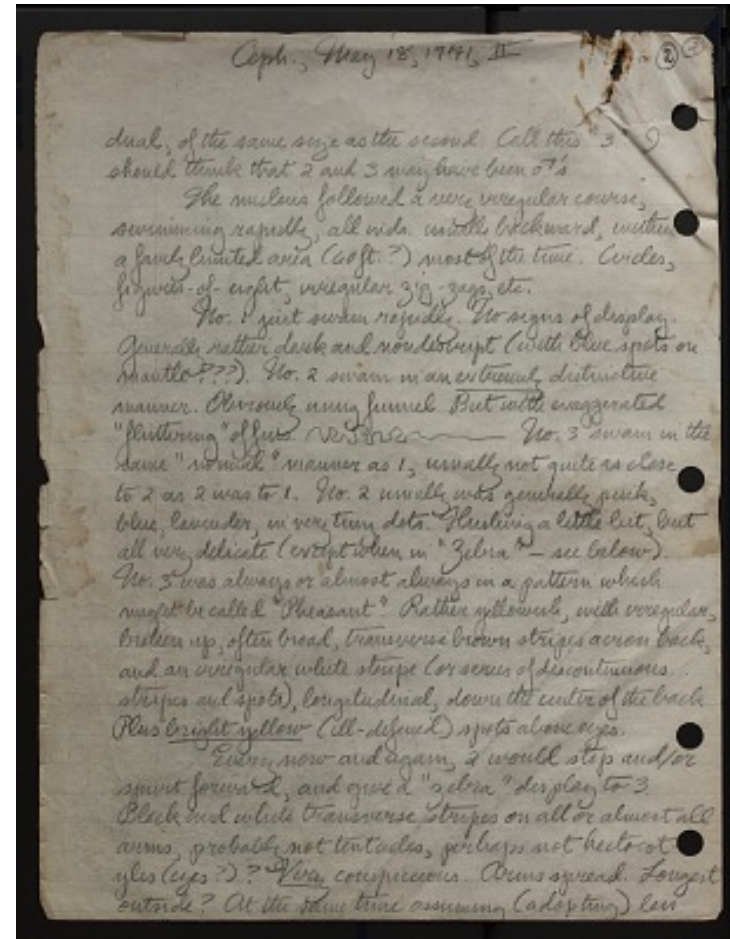 Ceph., May 18, 1971, II
2
dual, of the same size as the second. Call this 3. I
should think that 2 and 3 may have been ♂'s.
The nucleus followed a very irregular course,
swimming rapidly, all inds. usually backward, within
a fairly limited area (60 ft.?) most of the time. Circles,
figures-of-eight, irregular zig-zags, etc.
No. 1 just swam rapidly. No signs of display.
Generally rather dark and nondescript (with blue spots on
mantle???). No. 2 swam in an extremely distinctive
manner. Obviously using funnel. But with exaggerated
"fluttering" of fins. No. 3 swam in the
same "normal" manner as 1, usually not quite as close
to 2 as 2 was to 1. No. 2 usually was generally pink,
blue, lavender, in very tiny dots. Flushing a little bit, but
all very delicate (except when in "Zebra" – see below).
No. 3 was always or almost always in a pattern which
might be called "Pheasant". Rather yellowish, with irregular,
broken up, often broad, transverse brown stripes across back,
and an irregular white stripe (or series of discontinuous
stripes and spots), longitudinal, down the centre of the back.
Plus bright yellow (ill-defined) spots above eyes.
Every now and again, 2 would stop and/or
spurt forward, and give a "zebra" display to 3.
Black and white transverse stripes on all or almost all
arms, probably not tentacles, perhaps not hectocot
yles (eyes?)? Very conspicuous. Arms spread. Longest
outside? At the same time assuming (adopting)